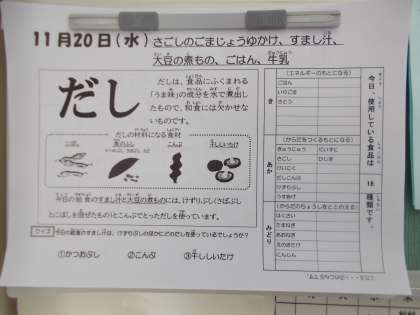 11月20日(水) さごしのごまじょうゆかけ、すまし汁、
大豆の煮もの、ごはん、牛乳
だし
だしは、食品にふくまれる
「うま味」の成分を水で煮出し
たもので、和食には欠かせな
いものです。
だしの材料になる食材
干ししいたけ
今日の給食のすまし汁と大豆の煮ものには、けずりぶし(さばぶし
とこんぶでとっただしを使っています。
クイズ 今日の給食のすまし汁は、けずりぶしのほかにどのだしを使っているでしょうか?
①かつおぶし ②こんぶ ③干ししいたけ
今日、使用している食品は
18
種類です。
き
(エネルギーのもとになる)
ごはん
さとう
あか
(からだをつくるもとになる)
ぎゅうにゅう だいず
さごし ひじき
けずりぶし
みどり
(からだのちょうしをととのえる)
はくさい
たまねぎ
えのきたけ
にんじん